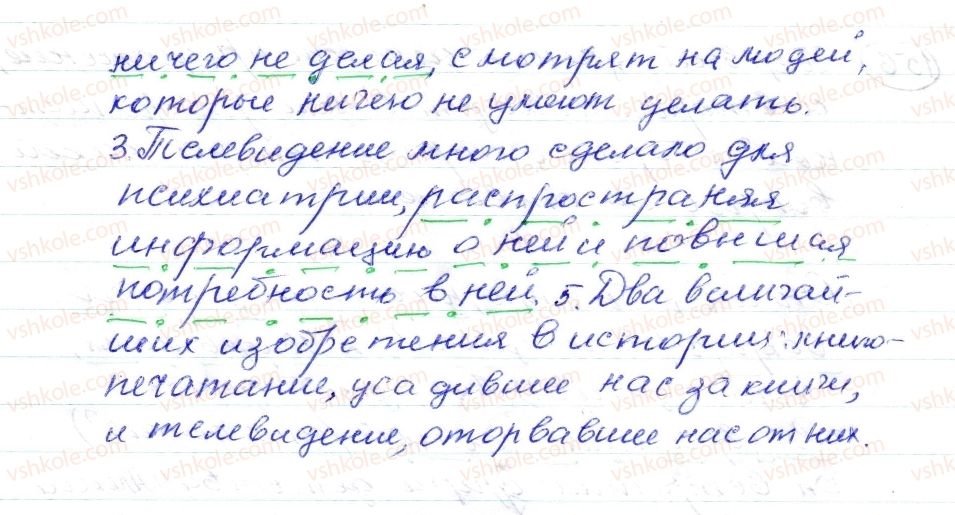 ничего не делая, смотрят на людей,
которые ничего не умеют делать.
3. Телевидение много сделало для
психиатрии, распространяя
информацию о ней и повышая
потребность в ней. 5. Два величай-
ших изобретения в истории: книго-
печатание, усадившее нас за книги,
и телевидение, оторвавшее нас от них.